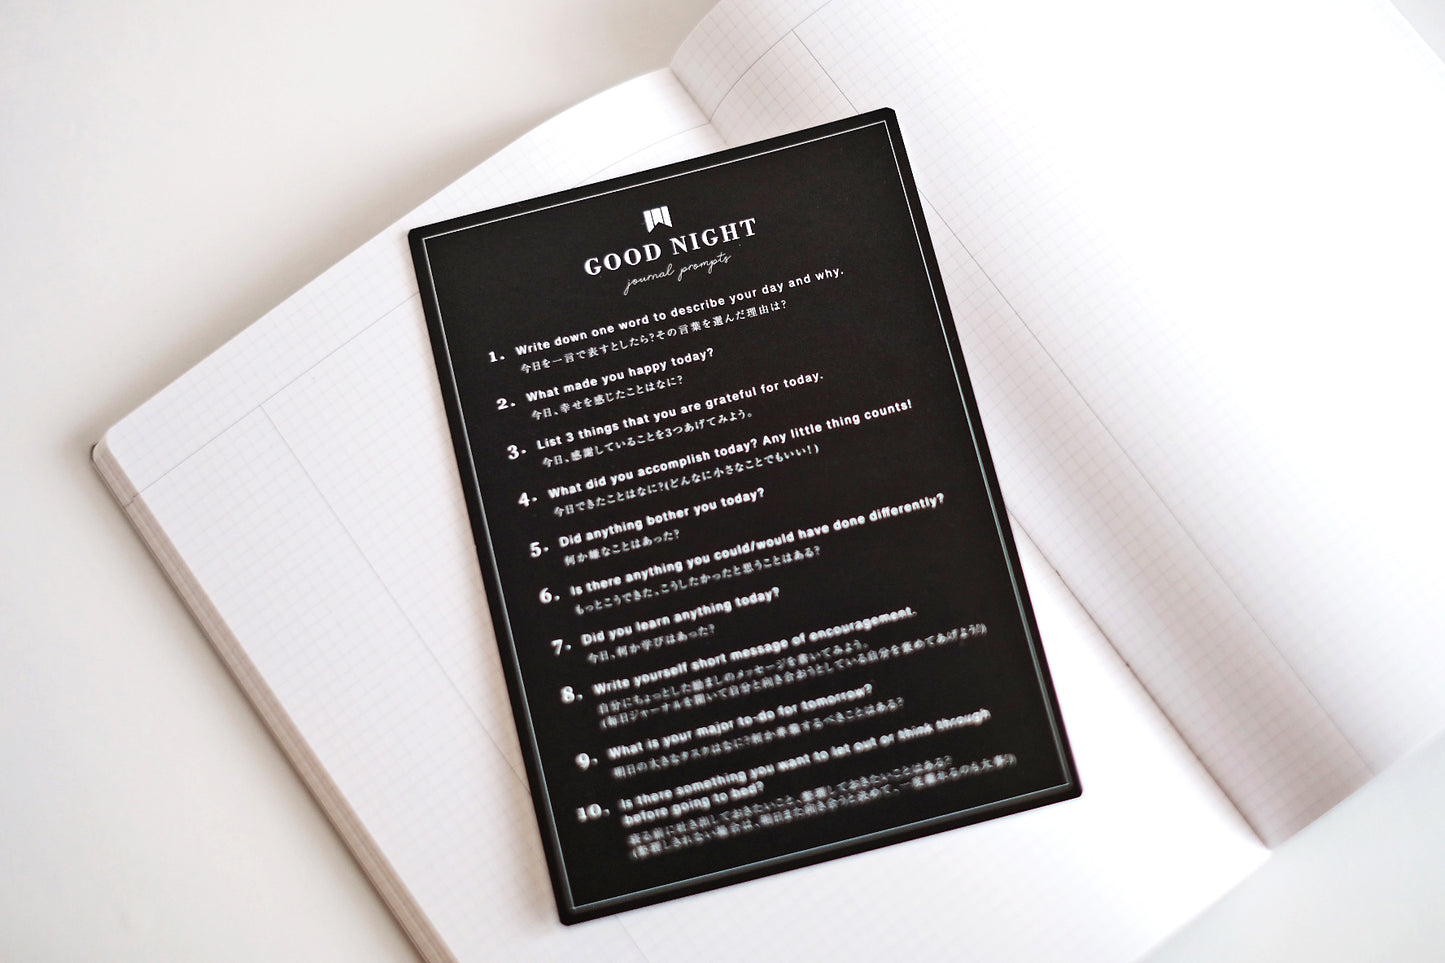 GOOD NIGHT
journal prompts
1. Write down one word to describe your day and why.
今日を一言で表すとしたら?その言葉を選んだ理由は?
2. What made you happy today?
今日、幸せを感じたことはなに?
3. List 3 things that you are grateful for today.
今日、感謝していることを3つあげてみよう。
4. What did you accomplish today? Any little thing counts!
今日できたことはなに?(どんなに小さなことでもいい!)
5. Did anything bother you today?
何か嫌なことはあった?
6. Is there anything you could/would have done differently?
もっとこうできた、こうしたかったと思うことはある?
7. Did you learn anything today?
今日、何か学びはあった?
8. Write yourself short message of encouragement.
自分にちょっとした励ましのメッセージを書いてみよう。
(毎日ジャーナルを開いて自分と向き合おうとしている自分を褒めてあげよう!)
9. What is your major to-do for tomorrow?
明日の大きなタスクはなに?何か準備するべきことはある?
10. Is there something you want to let out or think through
before going to bed?
寝る前に吐き出しておきたいこと、整理しておきたいことはある?
(整理しきれない場合は、明日また向き合うと決めて、一度離れるのも大事!)